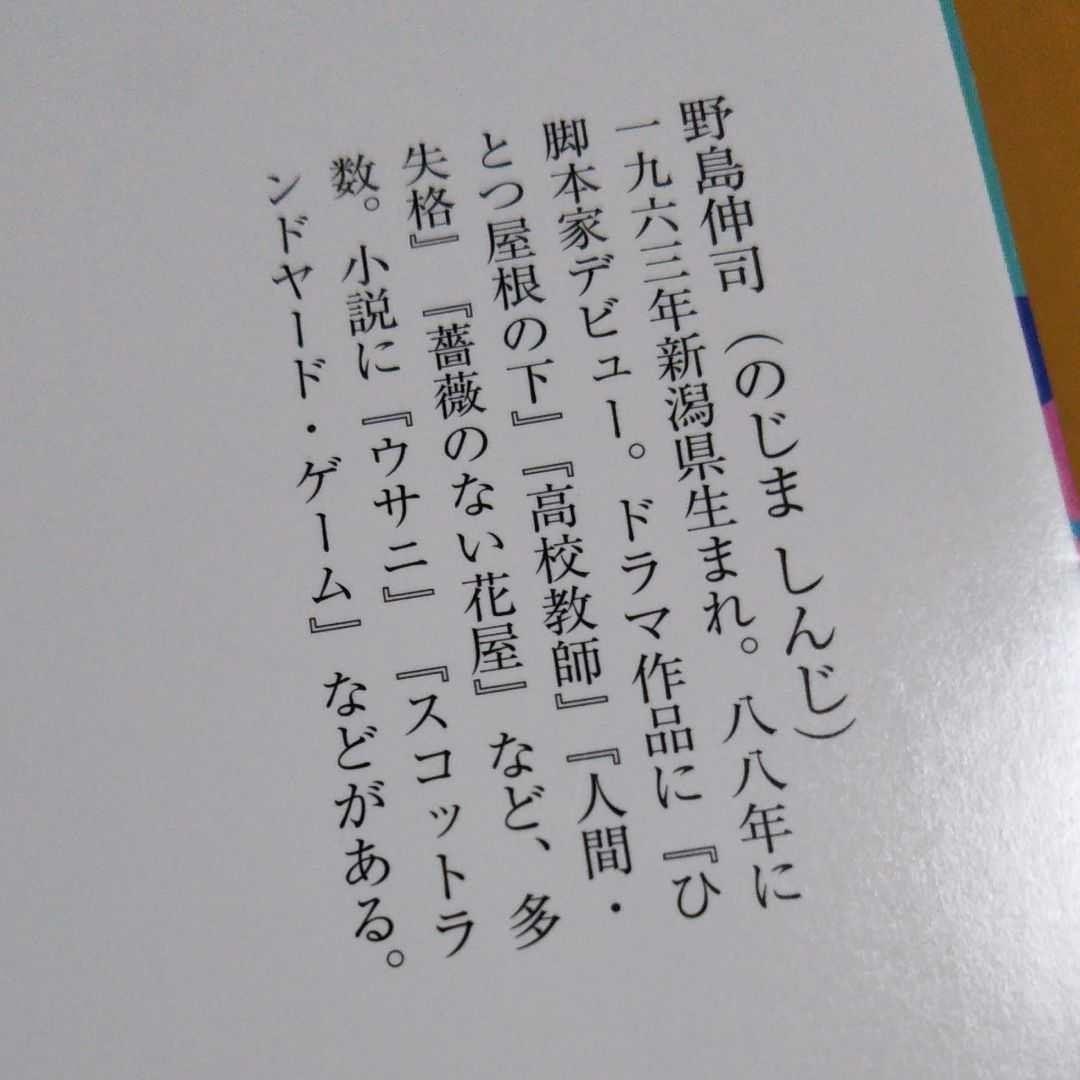 野島伸司（のじま しんじ）
一九六三年新潟県生まれ。八八年に
脚本家デビュー。ドラマ作品に『ひ
とつ屋根の下』『高校教師』『人間・
失格』『薔薇のない花屋』など、多
数。小説に『ウサニ』『スコットラ
ンドヤード・ゲーム』などがある。